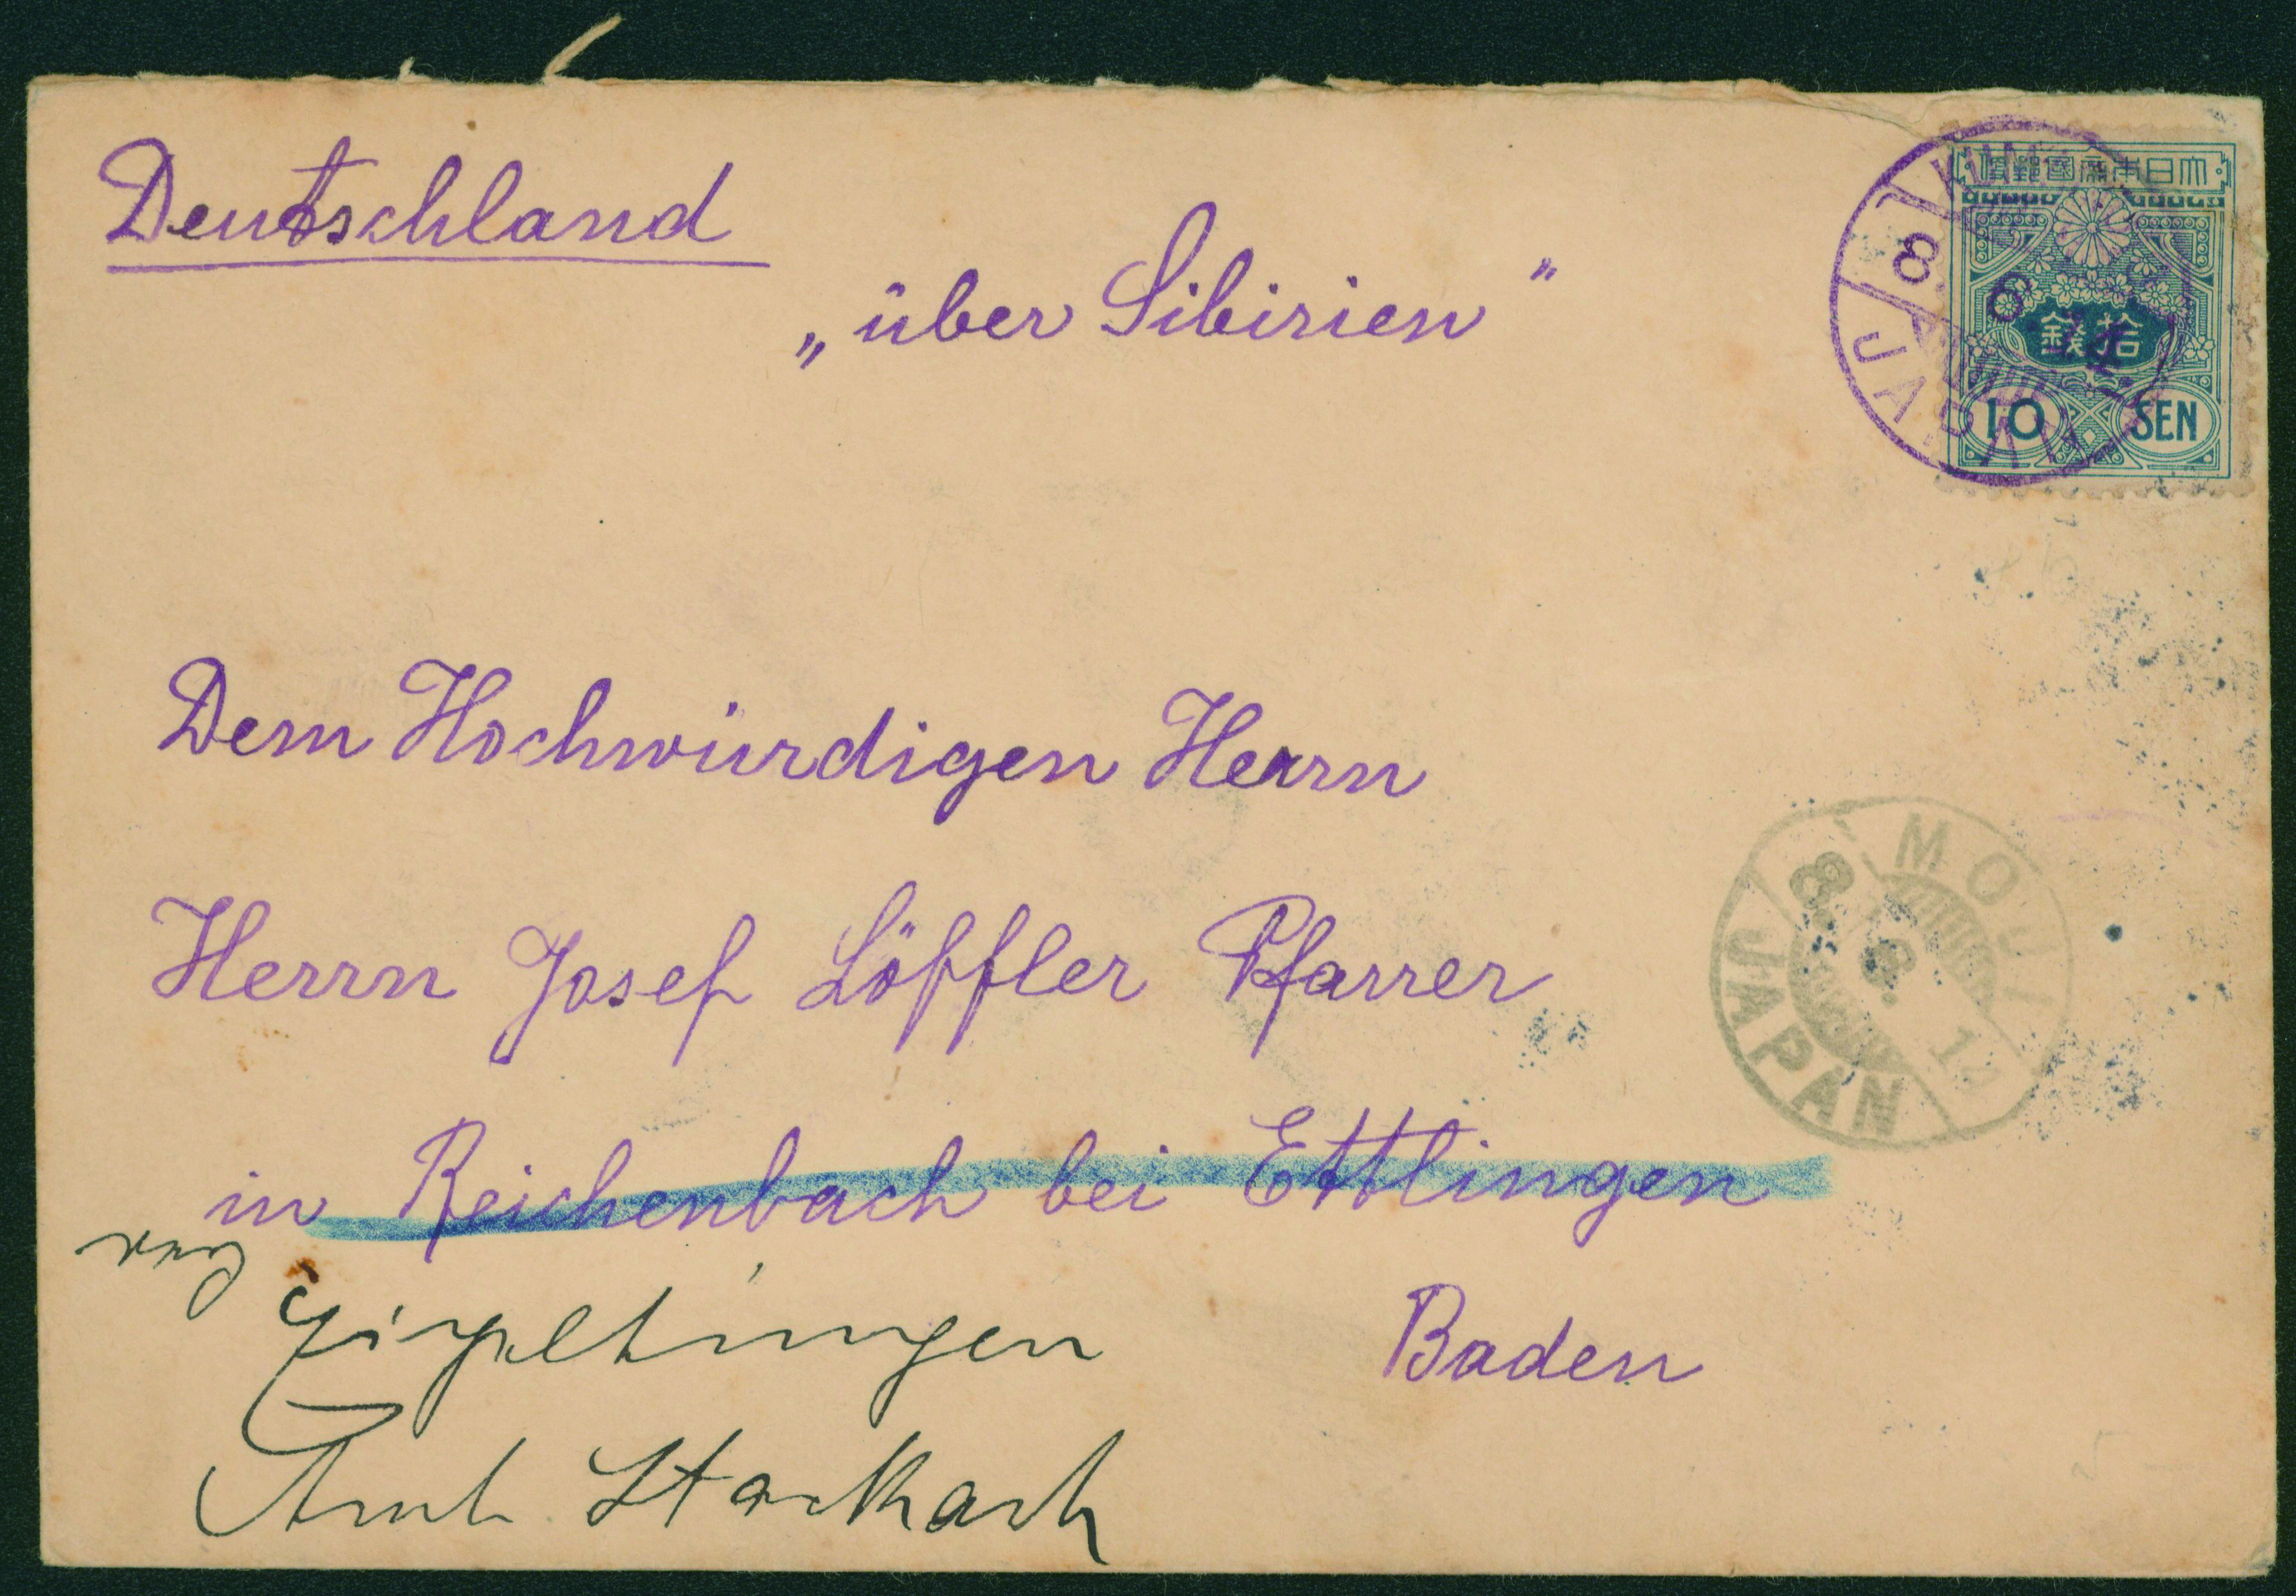 Deutschland
„über Sibirien”
大日本帝國郵便
拾錢
10 SEN
8. 6. 14
JAPAN
Dem Hochwürdigen Herrn
Herrn Josef Löffler Pfarrer
MOJI
8. 6. 14
JAPAN
in Reichenbach bei Ettlingen
Baden
Eigeltingen
Amt Stockach